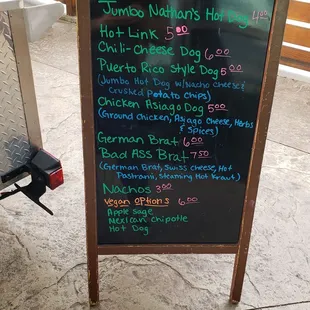 Jumbo Nathan's Hot Dog 4.00
Hot Link 5.00
Chili-Cheese Dog 6.00
Puerto Rico Style Dog 5.00
(Jumbo Hot Dog w/Nacho cheese &
Crushed potato Chips)
Chicken Asiago Dog 5.00
(Ground Chicken, Asiago Cheese, Herbs
& Spices)
German Brat 6.00
Bad Ass Brat 7.50
(German Brat, Swiss cheese, Hot
Pastrami, Steaming Hot Kraut)
Nachos 3.00
Vegan Options 6.00
Apple Sage
Mexican Chipotle
Hot Dog